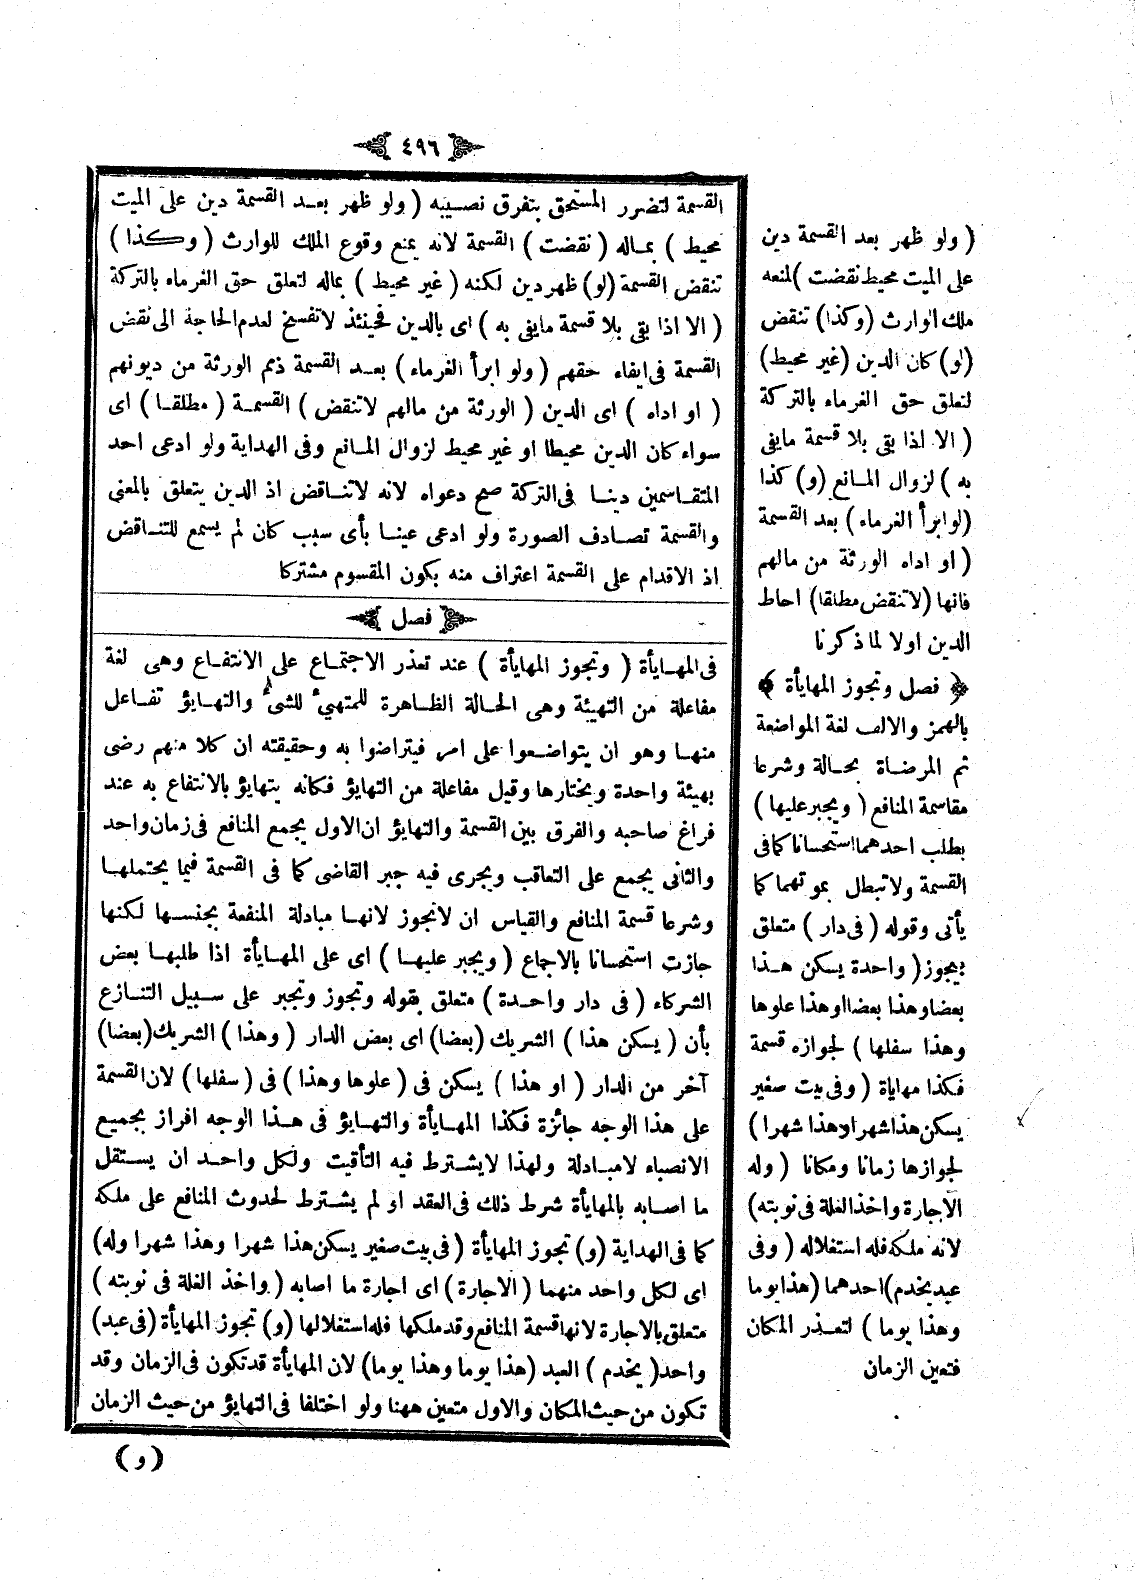 ٤٩٦
القسمة لتضرر المستحق بتفرق نصيبه ( ولو ظهر بعد القسمة دين على الميت
محيط ) بماله ( نقضت ) القسمة لانه يمنع وقوع الملك للوارث ( وكذا )
تنقض القسمة (لو) ظهر دين لكنه ( غير محيط ) بماله لتعلق حق الغرماء بالتركة
( الا اذا بقى بلا قسمة مايفى به ) اى بالدين فحينئذ لاتفسخ لعدم الحاجة الى نقض
القسمة فى ايفاء حقهم ( ولو ابرأ الغرماء ) بعد القسمة ذمم الورثة من ديونهم
( او اداه ) اى الدين ( الورثة من مالهم لاتنقض ) القسمة ( مطلقا ) اى
سواء كان الدين محيطا او غير محيط لزوال المانع وفى الهداية ولو ادعى احد
المتقاسمين دينا فى التركة صح دعواه لانه لاتناقض اذ الدين يتعلق بالمعنى
والقسمة تصادف الصورة ولو ادعى عينا بأى سبب كان لم يسمع للتناقض
اذ الاقدام على القسمة اعتراف منه بكون المقسوم مشتركا
فصل
فى المهايأة ( وتجوز المهايأة ) عند تعذر الاجتماع على الانتفاع وهى لغة
مفاعلة من التهيئة وهى الحالة الظاهرة للمتهيئ للشئ والتهايؤ تفاعل
منها وهو ان يتواضعوا على امر فيتراضوا به وحقيقته ان كلا منهم رضى
بهيئة واحدة ويختارها وقيل مفاعلة من التهايؤ فكانه يتهايؤ بالانتفاع به عند
فراغ صاحبه والفرق بين القسمة والتهايؤ ان الاول يجمع المنافع فى زمان واحد
والثانى يجمع على التعاقب ويجرى فيه جبر القاضى كما فى القسمة فيما يحتملها
وشرعا قسمة المنافع والقياس ان لاتجوز لانها مبادلة المنفعة بجنسها لكنها
جازت استحسانا بالاجماع ( ويجبر عليها ) اى على المهايأة اذا طلبها بعض
الشركاء ( فى دار واحدة ) متعلق بقوله وتجوز وتجبر على سبيل التنازع
بأن ( يسكن هذا ) الشريك (بعضا) اى بعض الدار ( وهذا ) الشريك (بعضا)
آخر من الدار ( او هذا ) يسكن فى ( علوها وهذا ) فى ( سفلها ) لان القسمة
على هذا الوجه جائزة فكذا المهايأة والتهايؤ فى هذا الوجه افراز بجميع
الانصباء لامبادلة ولهذا لايشترط فيه التأقيت ولكل واحد ان يستقل
ما اصابه بالمهايأة شرط ذلك فى العقد او لم يشترط لحدوث المنافع على ملكه
كما فى الهداية (و) تجوز المهايأة ( فى بيت صغير يسكن هذا شهرا وهذا شهرا وله)
اى لكل واحد منهما ( الاجارة ) اى اجارة ما اصابه ( واخذ الغلة فى نوبته )
متعلق بالاجارة لانها قسمة المنافع وقد ملكها فله استغلالها (و) تجوز المهايأة (فى عبد)
واحد ( يخدم ) العبد (هذا يوما وهذا يوما) لان المهايأة قد تكون فى الزمان وقد
تكون من حيث المكان والاول متعين ههنا ولو اختلفا فى التهايؤ من حيث الزمان
( و )
( ولو ظهر بعد القسمة دين
على الميت محيط نقضت ) لمنعه
ملك الوارث (وكذا) تنقض
(لو) كان الدين (غير محيط)
لتعلق حق الغرماء بالتركة
( الا اذا بقى بلا قسمة مايفى
به ) لزوال المانع (و) كذا
(لو ابرأ الغرماء) بعد القسمة
( او اداه الورثة من مالهم
فانها (لاتنقض مطلقا) احاط
الدين اولا لما ذكرنا
﴿ فصل وتجوز المهايأة ﴾
بالهمز والالف لغة المواضعة
ثم المرضاة بحالة وشرعا
مقاسمة المنافع ( ويجبر عليها )
بطلب احدهما استحسانا كما فى
القسمة ولاتبطل بموتهما كما
يأتى وقوله ( فى دار ) متعلق
بيجوز ( واحدة يسكن هذا
بعضا وهذا بعضا او هذا علوها
وهذا سفلها ) لجوازه قسمة
فكذا مهاياة ( وفى بيت صغير
يسكن هذا شهرا وهذا شهرا )
لجوازها زمانا ومكانا ( وله
الاجارة واخذ الغلة فى نوبته)
لانه ملكه فله استغلاله ( وفى
عبد يخدم) احدهما (هذا يوما
وهذا يوما ) لتعذر المكان
فتعين الزمان